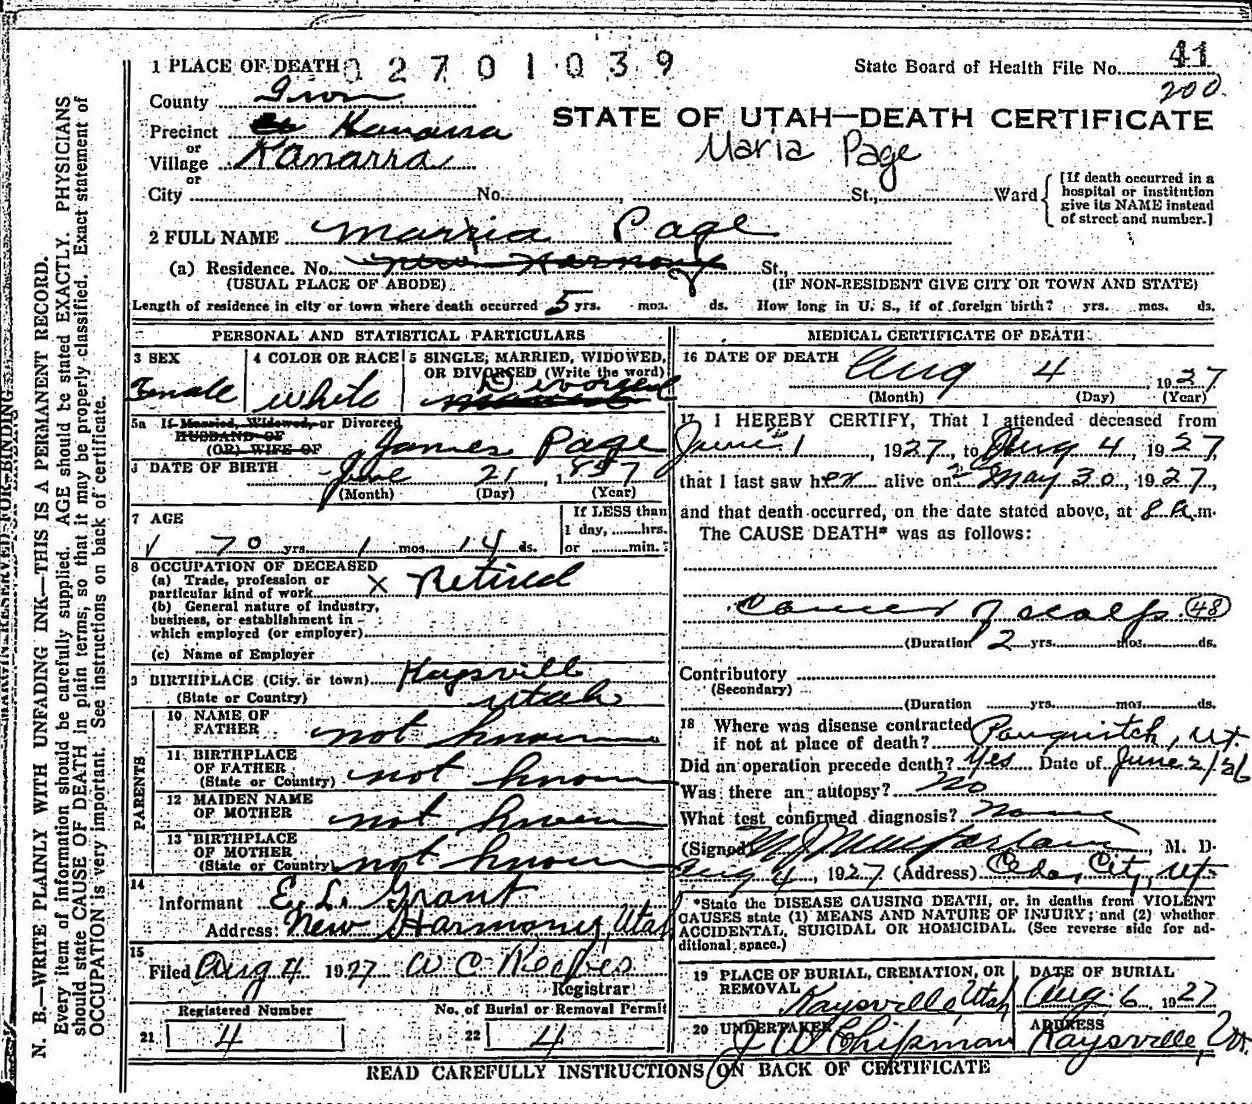 1 PLACE OF DEATH 02701039
State Board of Health File No. 41
200
County Iron
STATE OF UTAH—DEATH CERTIFICATE
Precinct Kanarra
Maria Page
or
Village Kanarra
or
City No. St., Ward
[If death occurred in a hospital or institution give its NAME instead of street and number.]
2 FULL NAME Marria Page
(a) Residence. No. New Harmony St.,
(USUAL PLACE OF ABODE) (IF NON-RESIDENT GIVE CITY OR TOWN AND STATE)
Length of residence in city or town where death occurred 5 yrs. mos. ds. How long in U. S., if of foreign birth? yrs. mos. ds.
PERSONAL AND STATISTICAL PARTICULARS
3 SEX
Female
4 COLOR OR RACE
White
5 SINGLE, MARRIED, WIDOWED, OR DIVORCED (Write the word)
Divorced
5a If Married, Widowed, or Divorced
HUSBAND OF
(OR) WIFE OF James Page
DATE OF BIRTH June 21 1857
(Month) (Day) (Year)
7 AGE
70 yrs. 1 mos. 14 ds.
If LESS than
1 day, hrs.
or min.
8 OCCUPATION OF DECEASED
(a) Trade, profession or
particular kind of work X Retired
(b) General nature of industry,
business, or establishment in
which employed (or employer)
(c) Name of Employer
9 BIRTHPLACE (City, or town) Kaysvill
(State or Country) Utah
PARENTS
10 NAME OF
FATHER not known
11 BIRTHPLACE
OF FATHER
(State or Country) not known
12 MAIDEN NAME
OF MOTHER not known
13 BIRTHPLACE
OF MOTHER
(State or Country) not known
14
Informant E. L. Grant
Address: New Harmony, Utah
15
Filed Aug 4 1927 W C Reeves
Registrar
Registered Number
21 4
No. of Burial or Removal Permit
22 4
MEDICAL CERTIFICATE OF DEATH
16 DATE OF DEATH
Aug 4 1927
(Month) (Day) (Year)
17 I HEREBY CERTIFY, That I attended deceased from
June 1, 1927, to Aug 4, 1927,
that I last saw her alive on May 30, 1927,
and that death occurred, on the date stated above, at 8 a.m.
The CAUSE DEATH* was as follows:
Cancer of scalp (48)
(Duration 2 yrs. mos. ds.
Contributory
(Secondary)
(Duration yrs. mos. ds.
18 Where was disease contracted
if not at place of death? Panguitch, Ut.
Did an operation precede death? Yes Date of June 2/26
Was there an autopsy? No
What test confirmed diagnosis? None
(Signed) M J Macfarlane, M. D.
Aug 4, 1927 (Address) Cedar City, Ut.
*State the DISEASE CAUSING DEATH, or, in deaths from VIOLENT
CAUSES state (1) MEANS AND NATURE OF INJURY; and (2) whether
ACCIDENTAL, SUICIDAL OR HOMICIDAL. (See reverse side for ad-
ditional space.)
19 PLACE OF BURIAL, CREMATION, OR
REMOVAL
Kaysville, Utah
DATE OF BURIAL
Aug. 6 1927
20 UNDERTAKER
J W Chipman
ADDRESS
Kaysville, Ut.
READ CAREFULLY INSTRUCTIONS ON BACK OF CERTIFICATE
MARGIN RESERVED FOR BINDING
N. B.—WRITE PLAINLY WITH UNFADING INK—THIS IS A PERMANENT RECORD.
Every item of information should be carefully supplied. AGE should be stated EXACTLY. PHYSICIANS
should state CAUSE OF DEATH in plain terms, so that it may be properly classified. Exact statement of
OCCUPATION is very important. See instructions on back of certificate.